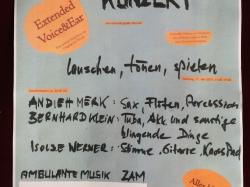 KONZERT
Extended
Voice&Ear
lauschen, tönen, spielen
ANDI ETMERK: Sax, Flöten, Percussions
BERNHARD KLEIN: Tuba, Akk und sonstige
klingende Dinge
ISOLDE WERNER: Stimme, Gitarre, KaosPad
AMBULANTE MUSIK ZAM